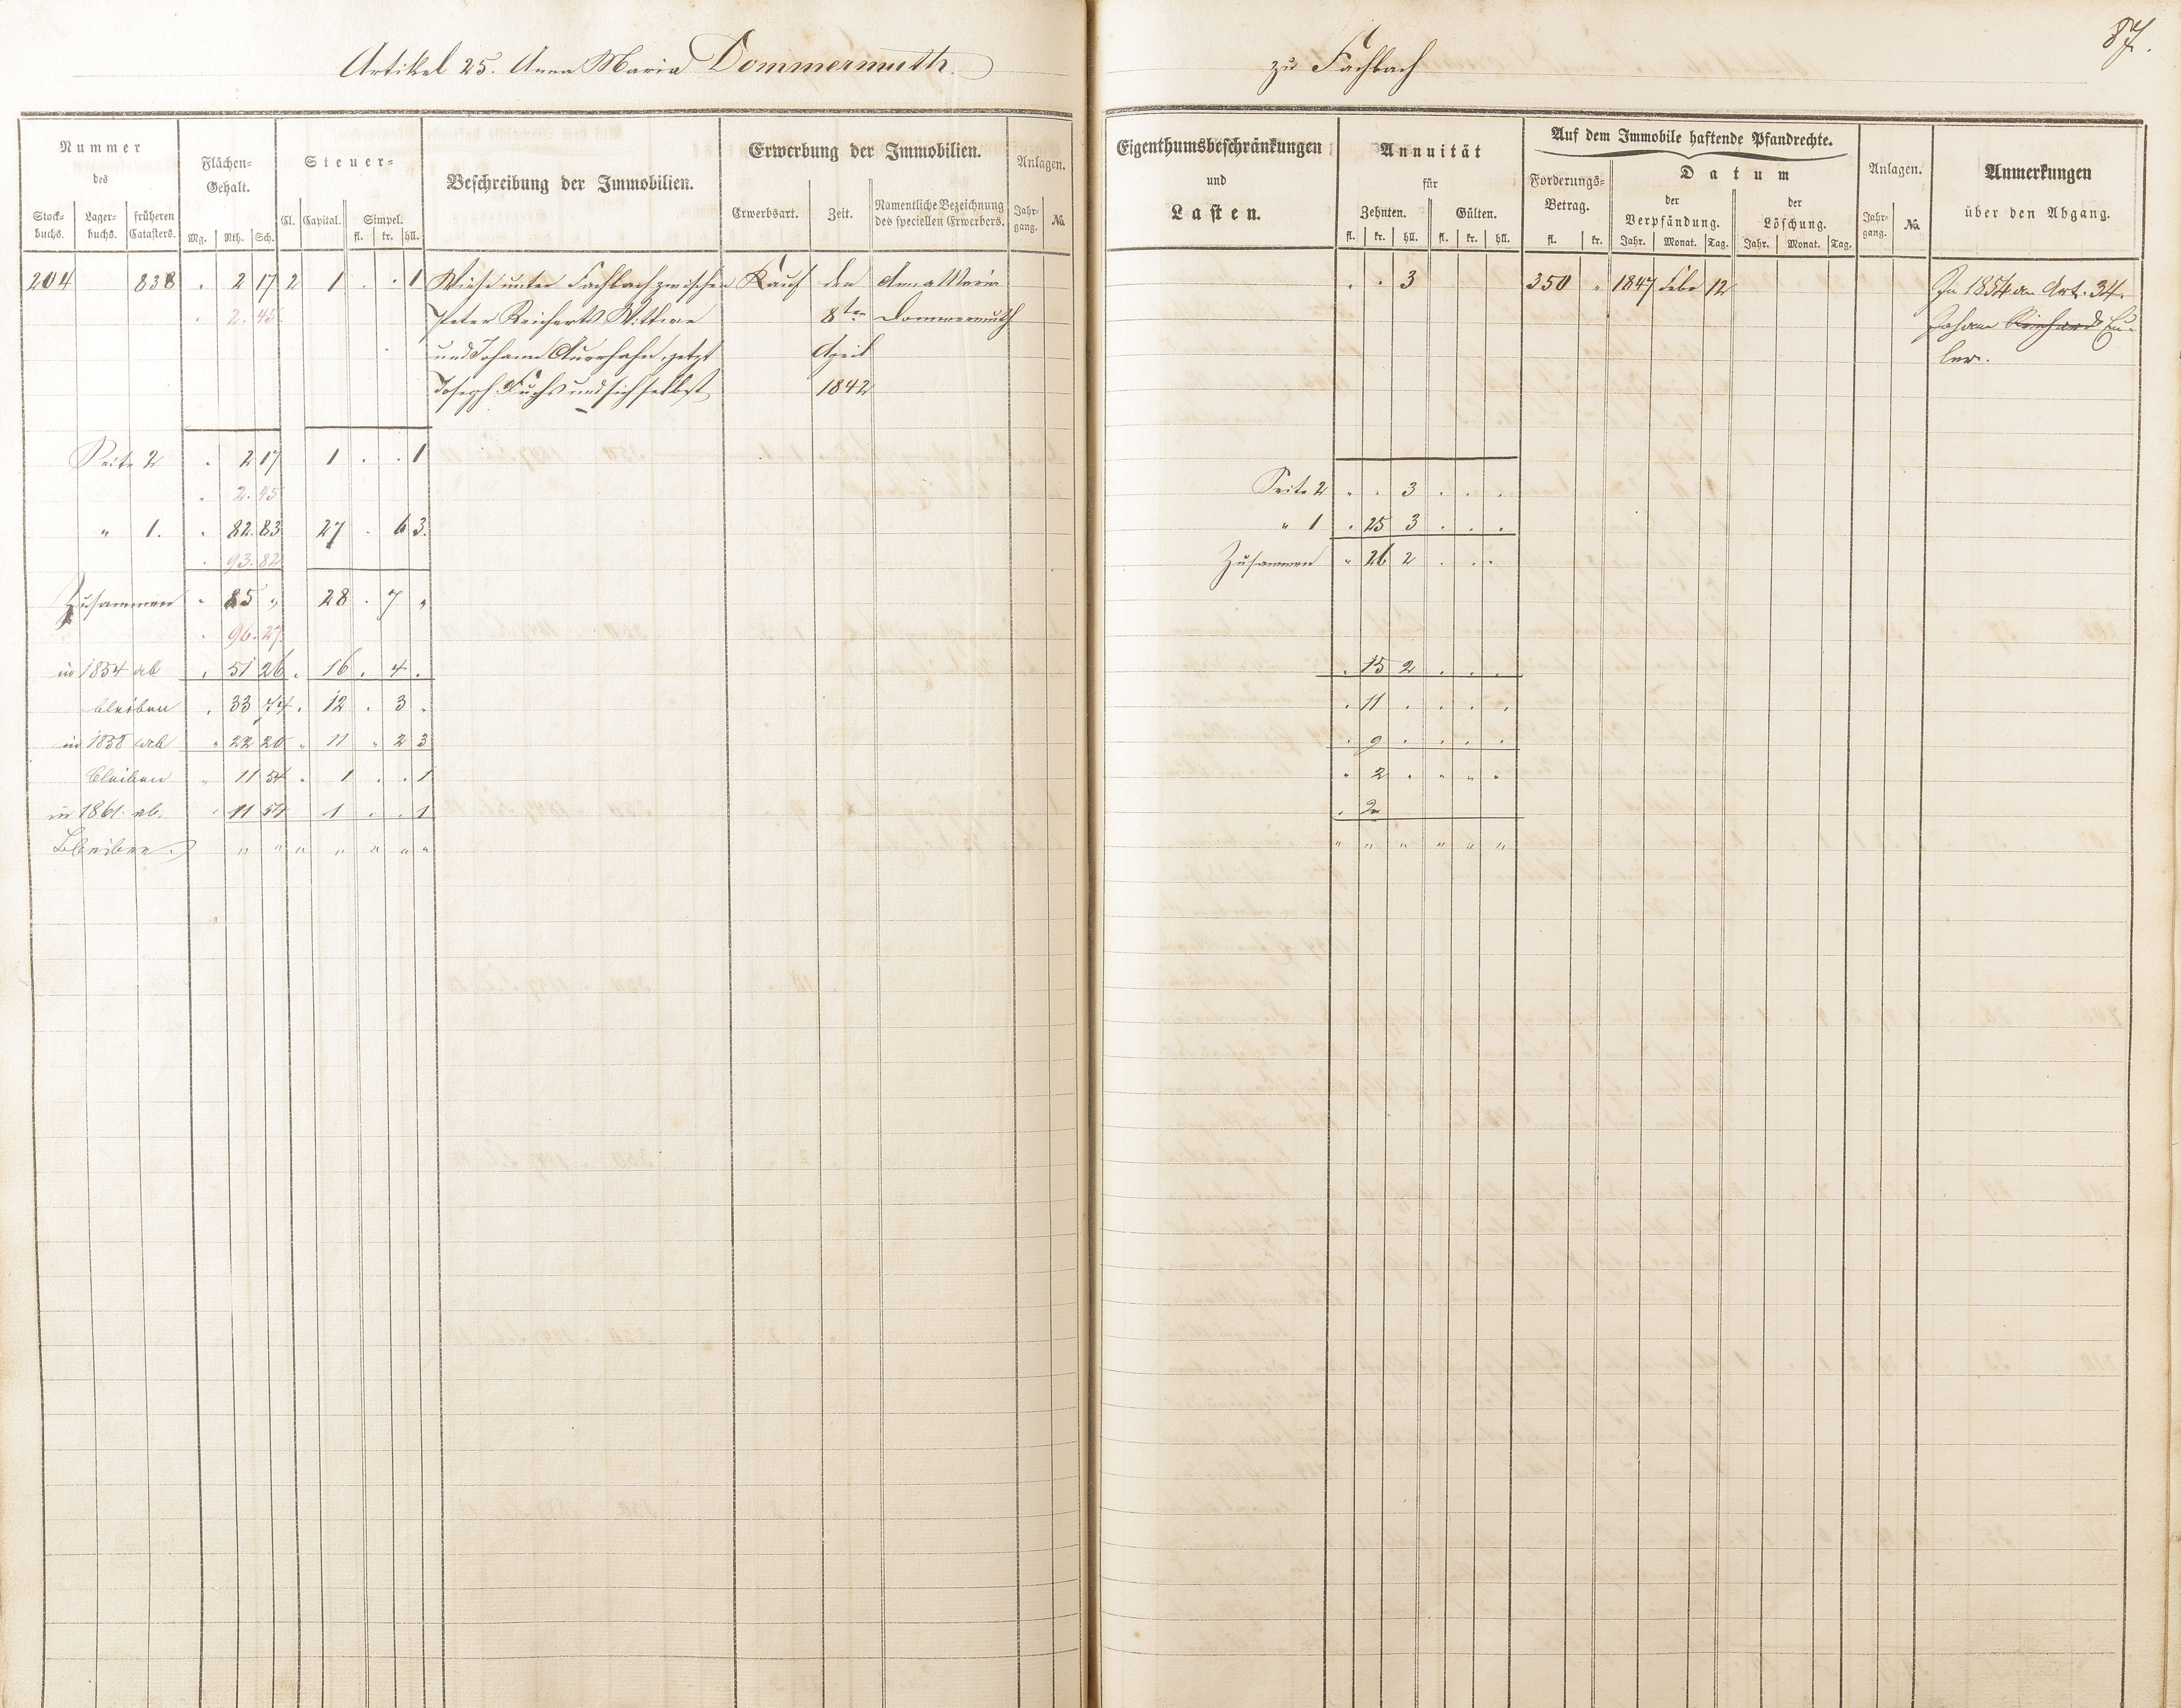 87.
Artikel 25. Anna Maria Dommermuth.
zu Fachbach
Nummer
des
Stock-
buchs.
Lager-
buchs.
früheren
Catasters.
Flächen-
Gehalt.
Mg. Rth. Sch.
Steuer-
Cl. Capital. Simpel.
fl. kr. hll.
Beschreibung der Immobilien.
Erwerbung der Immobilien.
Erwerbsart. Zeit.
Namentliche Bezeichnung
des speciellen Erwerbers.
Anlagen.
Jahr-
gang.
No.
Eigenthumsbeschränkungen
und
Lasten.
Annuität
für
Zehnten. Gülten.
fl. kr. hll. fl. kr. hll.
Auf dem Immobile haftende Pfandrechte.
Forderungs-
Betrag.
fl. kr.
Datum
der
Verpfändung.
Jahr. Monat. Tag.
der
Löschung.
Jahr. Monat. Tag.
Anlagen.
Jahr-
gang.
No.
Anmerkungen
über den Abgang.
204 838 . 2 17 2 1 . . 1 Wiese unter Fachbach zwischen Kauf den Anna Maria
. 2. 45 Peter Reicherts Wittwe 8ten Dommermuth
und Johann Auerhahn, jetzt April
Joseph Fuchs und sich selbst 1842
. . 3 350 " 1847 Febr 12 In 1854 an Art. 34.
Johann Reinhard Eu-
ler.
Seite 2 . 2 17 1 . . 1
. 2. 45
" 1. . 82. 83 27 . 6 3.
. 93. 82
Zusammen . 85 " 28 . 7 "
. 96. 27.
in 1854 ab . 51 26 . 16 . 4 .
bleiben . 33 74 . 12 . 3 .
in 1858 ab " 22 20 " 11 " 2 3
bleiben " 11 54 " 1 . . 1
in 1861 ab. " 11 54 1 . . 1
Bleiben " " " " " " "
Seite 2 " . 3 . . .
" 1 . 25 3 . . .
Zusammen " 26 2 . . .
. 15 2 . . .
. 11 . . . .
. 9 . . . .
" 2 . " " "
. 2
" " " " " "